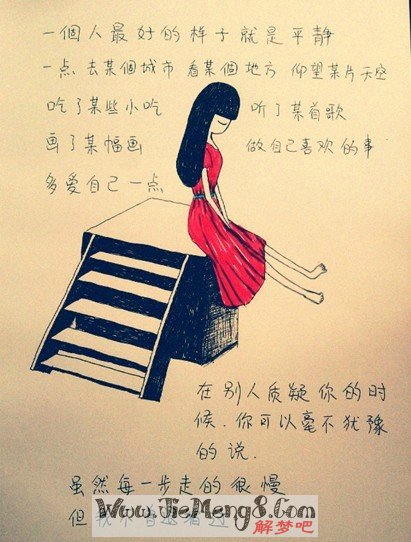 一個人最好的样子就是平静
一点 去某個城市 看某個地方 仰望某片天空
吃了某些小吃 听了某首歌
画了某幅画 做自己喜欢的事
多爱自己一点
在别人质疑你的时
候.你可以毫不犹豫
的说.
虽然每一步走的很慢
但我不曾退缩过
Www.JieMeng8.Com
解梦吧